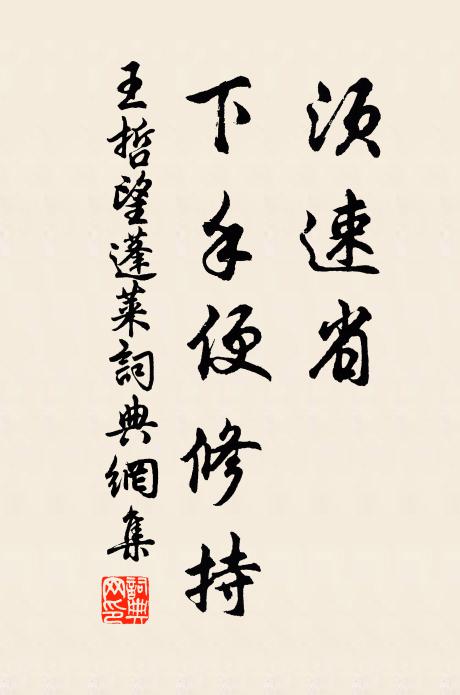 须速省
下手便修持
王哲望蓬莱詞典網集
詞典
网印